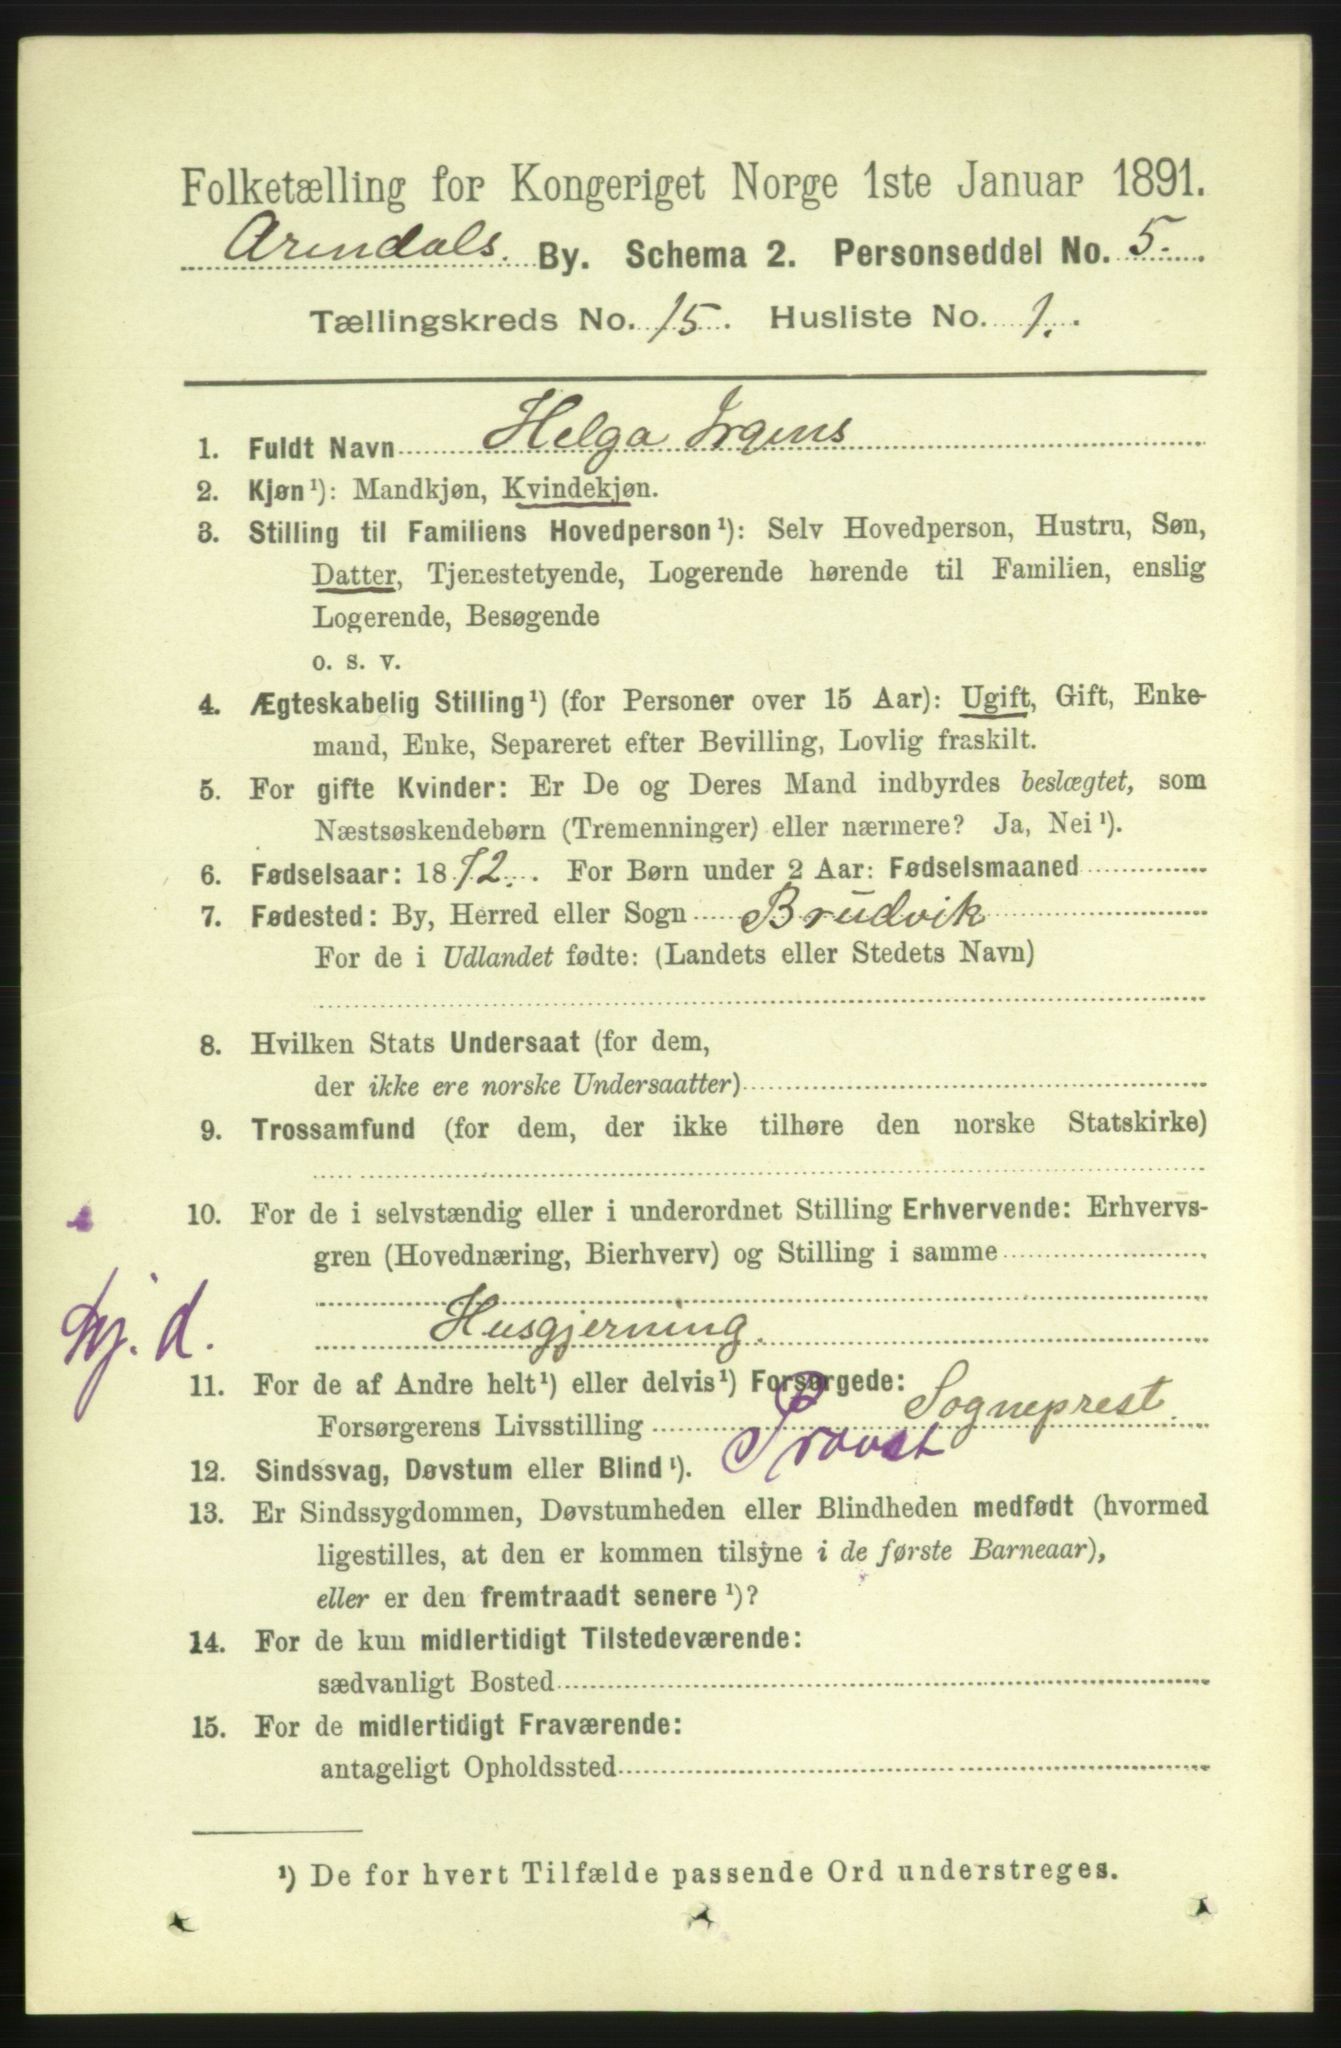 Folketælling for Kongeriget Norge 1ste Januar 1891.
Arendals. By. Schema 2. Personseddel No. 5.
Tællingskreds No. 15. Husliste No. 1.
1. Fuldt Navn Helga Irgens
2. Kjøn¹): Mandkjøn, Kvindekjøn.
3. Stilling til Familiens Hovedperson¹): Selv Hovedperson, Hustru, Søn,
Datter, Tjenestetyende, Logerende hørende til Familien, enslig
Logerende, Besøgende
o. s. v.
4. Ægteskabelig Stilling¹) (for Personer over 15 Aar): Ugift, Gift, Enke-
mand, Enke, Separeret efter Bevilling, Lovlig fraskilt.
5. For gifte Kvinder: Er De og Deres Mand indbyrdes beslægtet, som
Næstsøskendebørn (Tremenninger) eller nærmere? Ja, Nei¹).
6. Fødselsaar: 1872. For Børn under 2 Aar: Fødselsmaaned
7. Fødested: By, Herred eller Sogn Brudvik
For de i Udlandet fødte: (Landets eller Stedets Navn)
8. Hvilken Stats Undersaat (for dem,
der ikke ere norske Undersaatter)
9. Trossamfund (for dem, der ikke tilhøre den norske Statskirke)
10. For de i selvstændig eller i underordnet Stilling Erhvervende: Erhvervs-
gren (Hovednæring, Bierhverv) og Stilling i samme
hj. d. Husgjerning.
11. For de af Andre helt¹) eller delvis¹) Forsørgede:
Forsørgerens Livsstilling Sogneprest.
Provst
12. Sindssvag, Døvstum eller Blind¹).
13. Er Sindssygdommen, Døvstumheden eller Blindheden medfødt (hvormed
ligestilles, at den er kommen tilsyne i de første Barneaar),
eller er den fremtraadt senere¹)?
14. For de kun midlertidigt Tilstedeværende:
sædvanligt Bosted
15. For de midlertidigt Fraværende:
antageligt Opholdssted
¹) De for hvert Tilfælde passende Ord understreges.